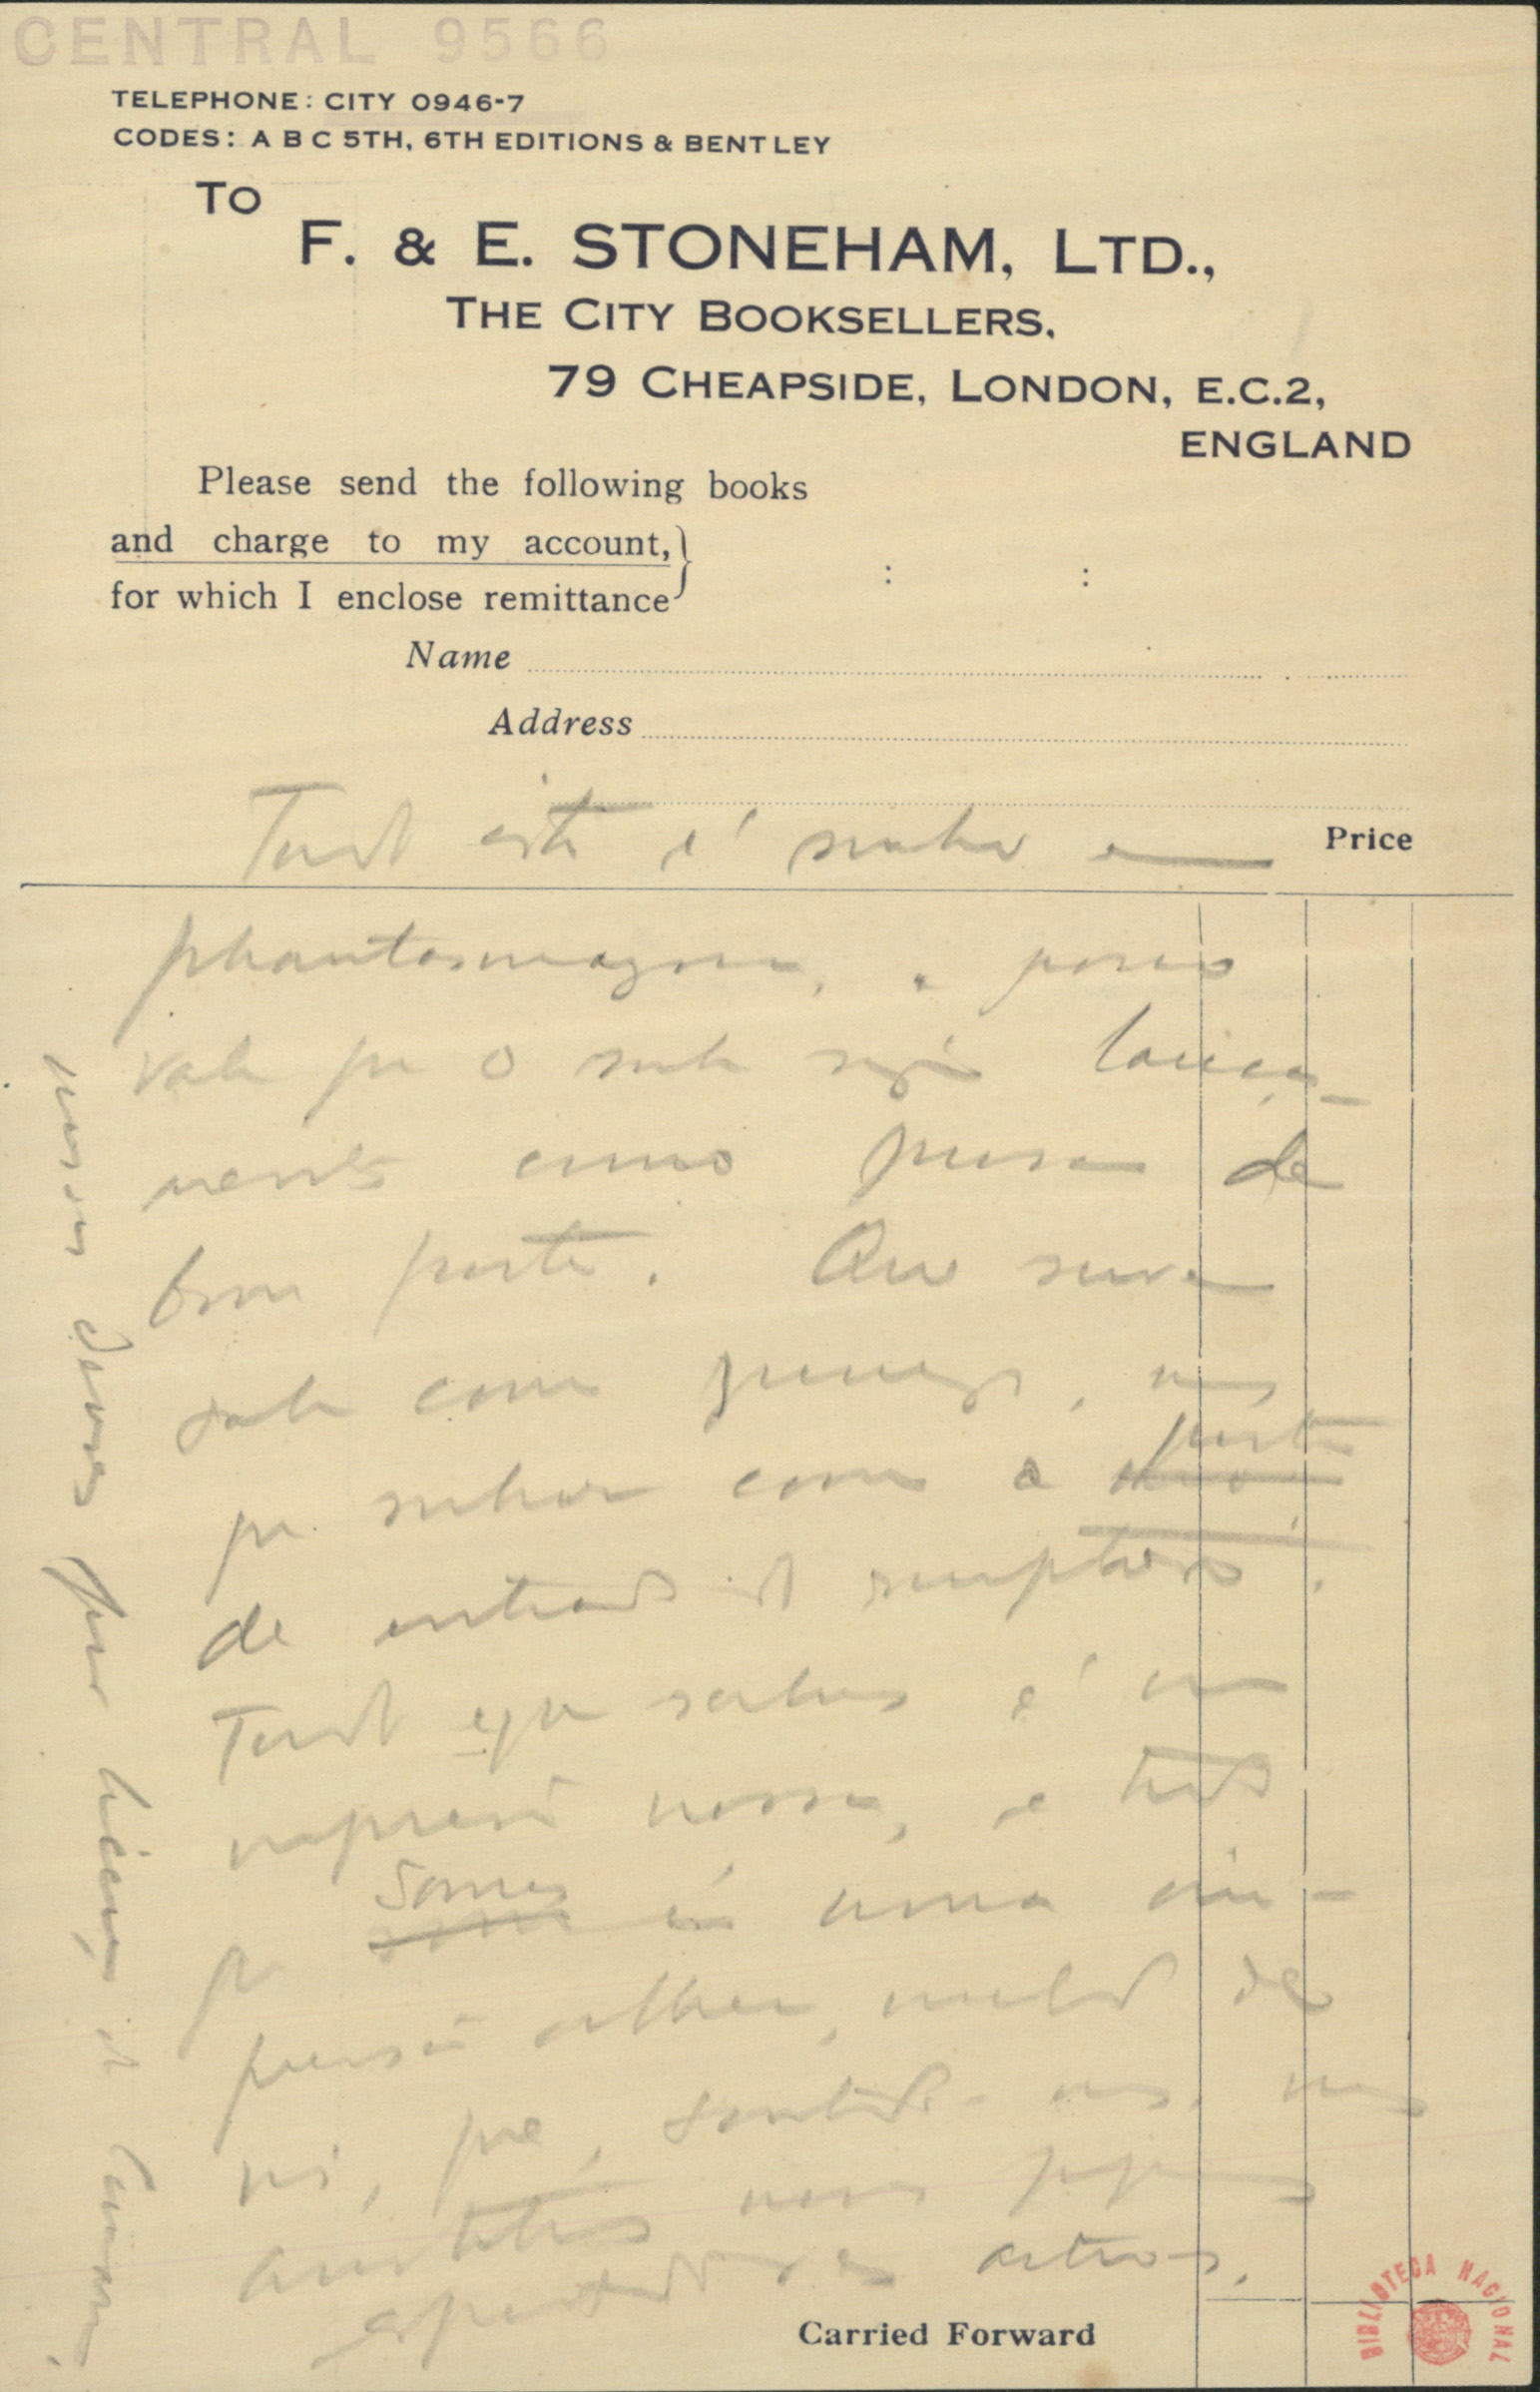 CENTRAL 9566
TELEPHONE: CITY 0946-7
CODES: A B C 5TH, 6TH EDITIONS & BENTLEY
TO
F. & E. STONEHAM, LTD.,
THE CITY BOOKSELLERS,
79 CHEAPSIDE, LONDON, E.C.2,
ENGLAND
Please send the following books
and charge to my account,
for which I enclose remittance
: :
Name
Address
Tudo isto é sonho e
Price
phantasmagoria, e pouco
vale que o sonho seja lança-
mentos como prosa de
bom porte. Que serve
sonhar com princezas, mais
que sonhar com a porta
de entrada do escriptorio.
Tudo que sabemos é uma
impressão nossa, e tudo
que somos é uma im-
pressão alheia, de
nós, que, sentindo-nos, nos
nossos proprios
espectadores activos,
nossos deuses por licença da Camara.
Carried Forward
BIBLIOTECA NACIONAL